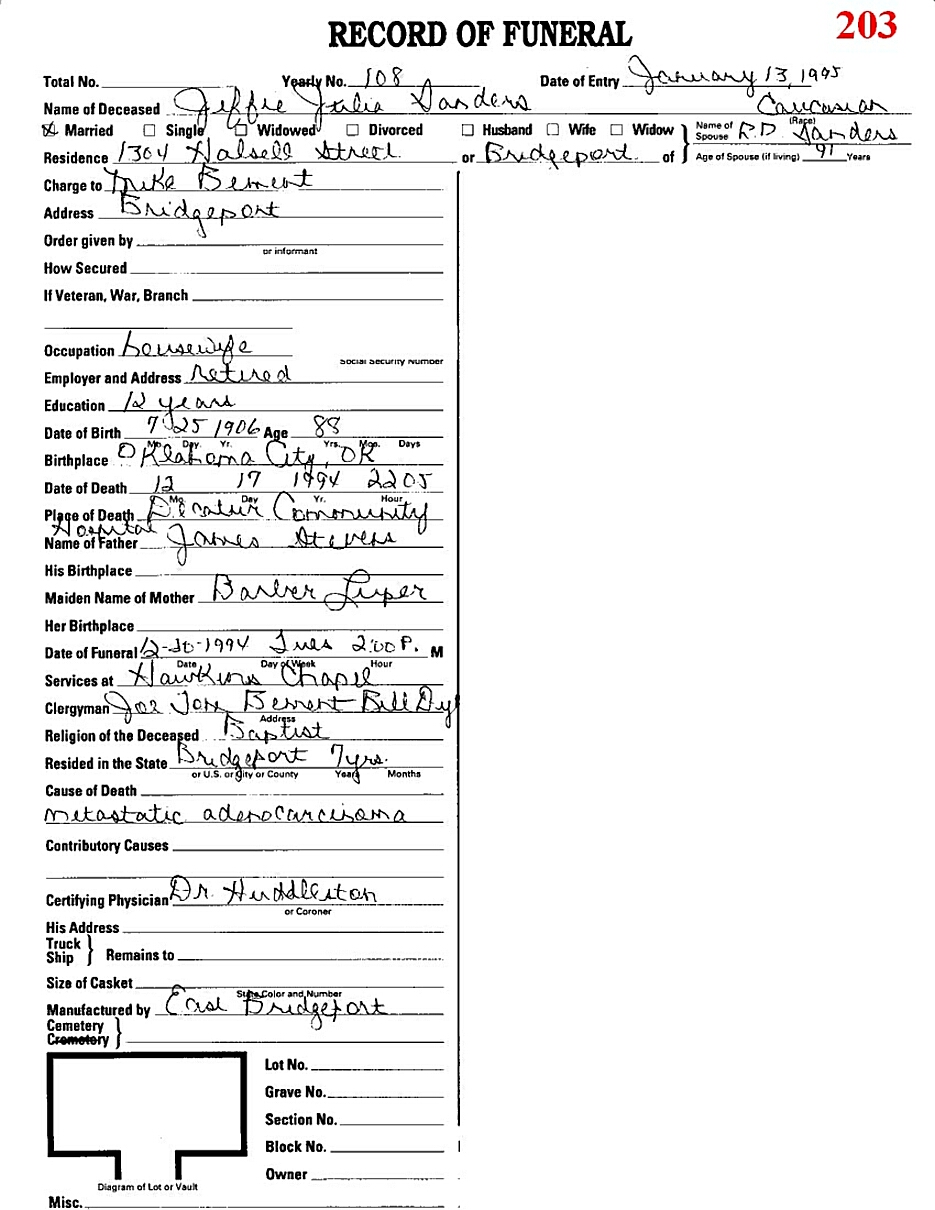 203
RECORD OF FUNERAL
Total No. Yearly No. 108 Date of Entry January 13, 1995
Name of Deceased Jeffie Julia Sanders Caucasian
(Race)
Married Single Widowed Divorced Husband Wife Widow } Name of Spouse R.D. Sanders
Residence 1304 Halsell Street or Bridgeport of Age of Spouse (if living) 91 Years
Charge to Mike Bement
Address Bridgeport
Order given by
or informant
How Secured
If Veteran, War, Branch
Occupation housewife
Social Security Number
Employer and Address Retired
Education 12 years
Date of Birth 7 25 1906 Age 88
Mo. Day. Yr. Yrs. Mos. Days
Birthplace Oklahoma City, OK
Date of Death 12 17 1994 2205
Mo. Day Yr. Hour
Place of Death Decatur Community
Hospital
Name of Father James Stevens
His Birthplace
Maiden Name of Mother Barber Luper
Her Birthplace
Date of Funeral 12-20-1994 Tues 2:00 P. M
Date Day of Week Hour
Services at Hawkins Chapel
Clergyman Joe Tom Bement Bill Dy
Address
Religion of the Deceased Baptist
Resided in the State Bridgeport 7 yrs.
or U.S. or City or County Years Months
Cause of Death
metastatic adenocarcinoma
Contributory Causes
Certifying Physician Dr. Huddleston
or Coroner
His Address
Truck
Ship } Remains to
Size of Casket
State Color and Number
Manufactured by East Bridgeport
Cemetery
Crematory }
Lot No.
Grave No.
Section No.
Block No.
Owner
Diagram of Lot or Vault
Misc.